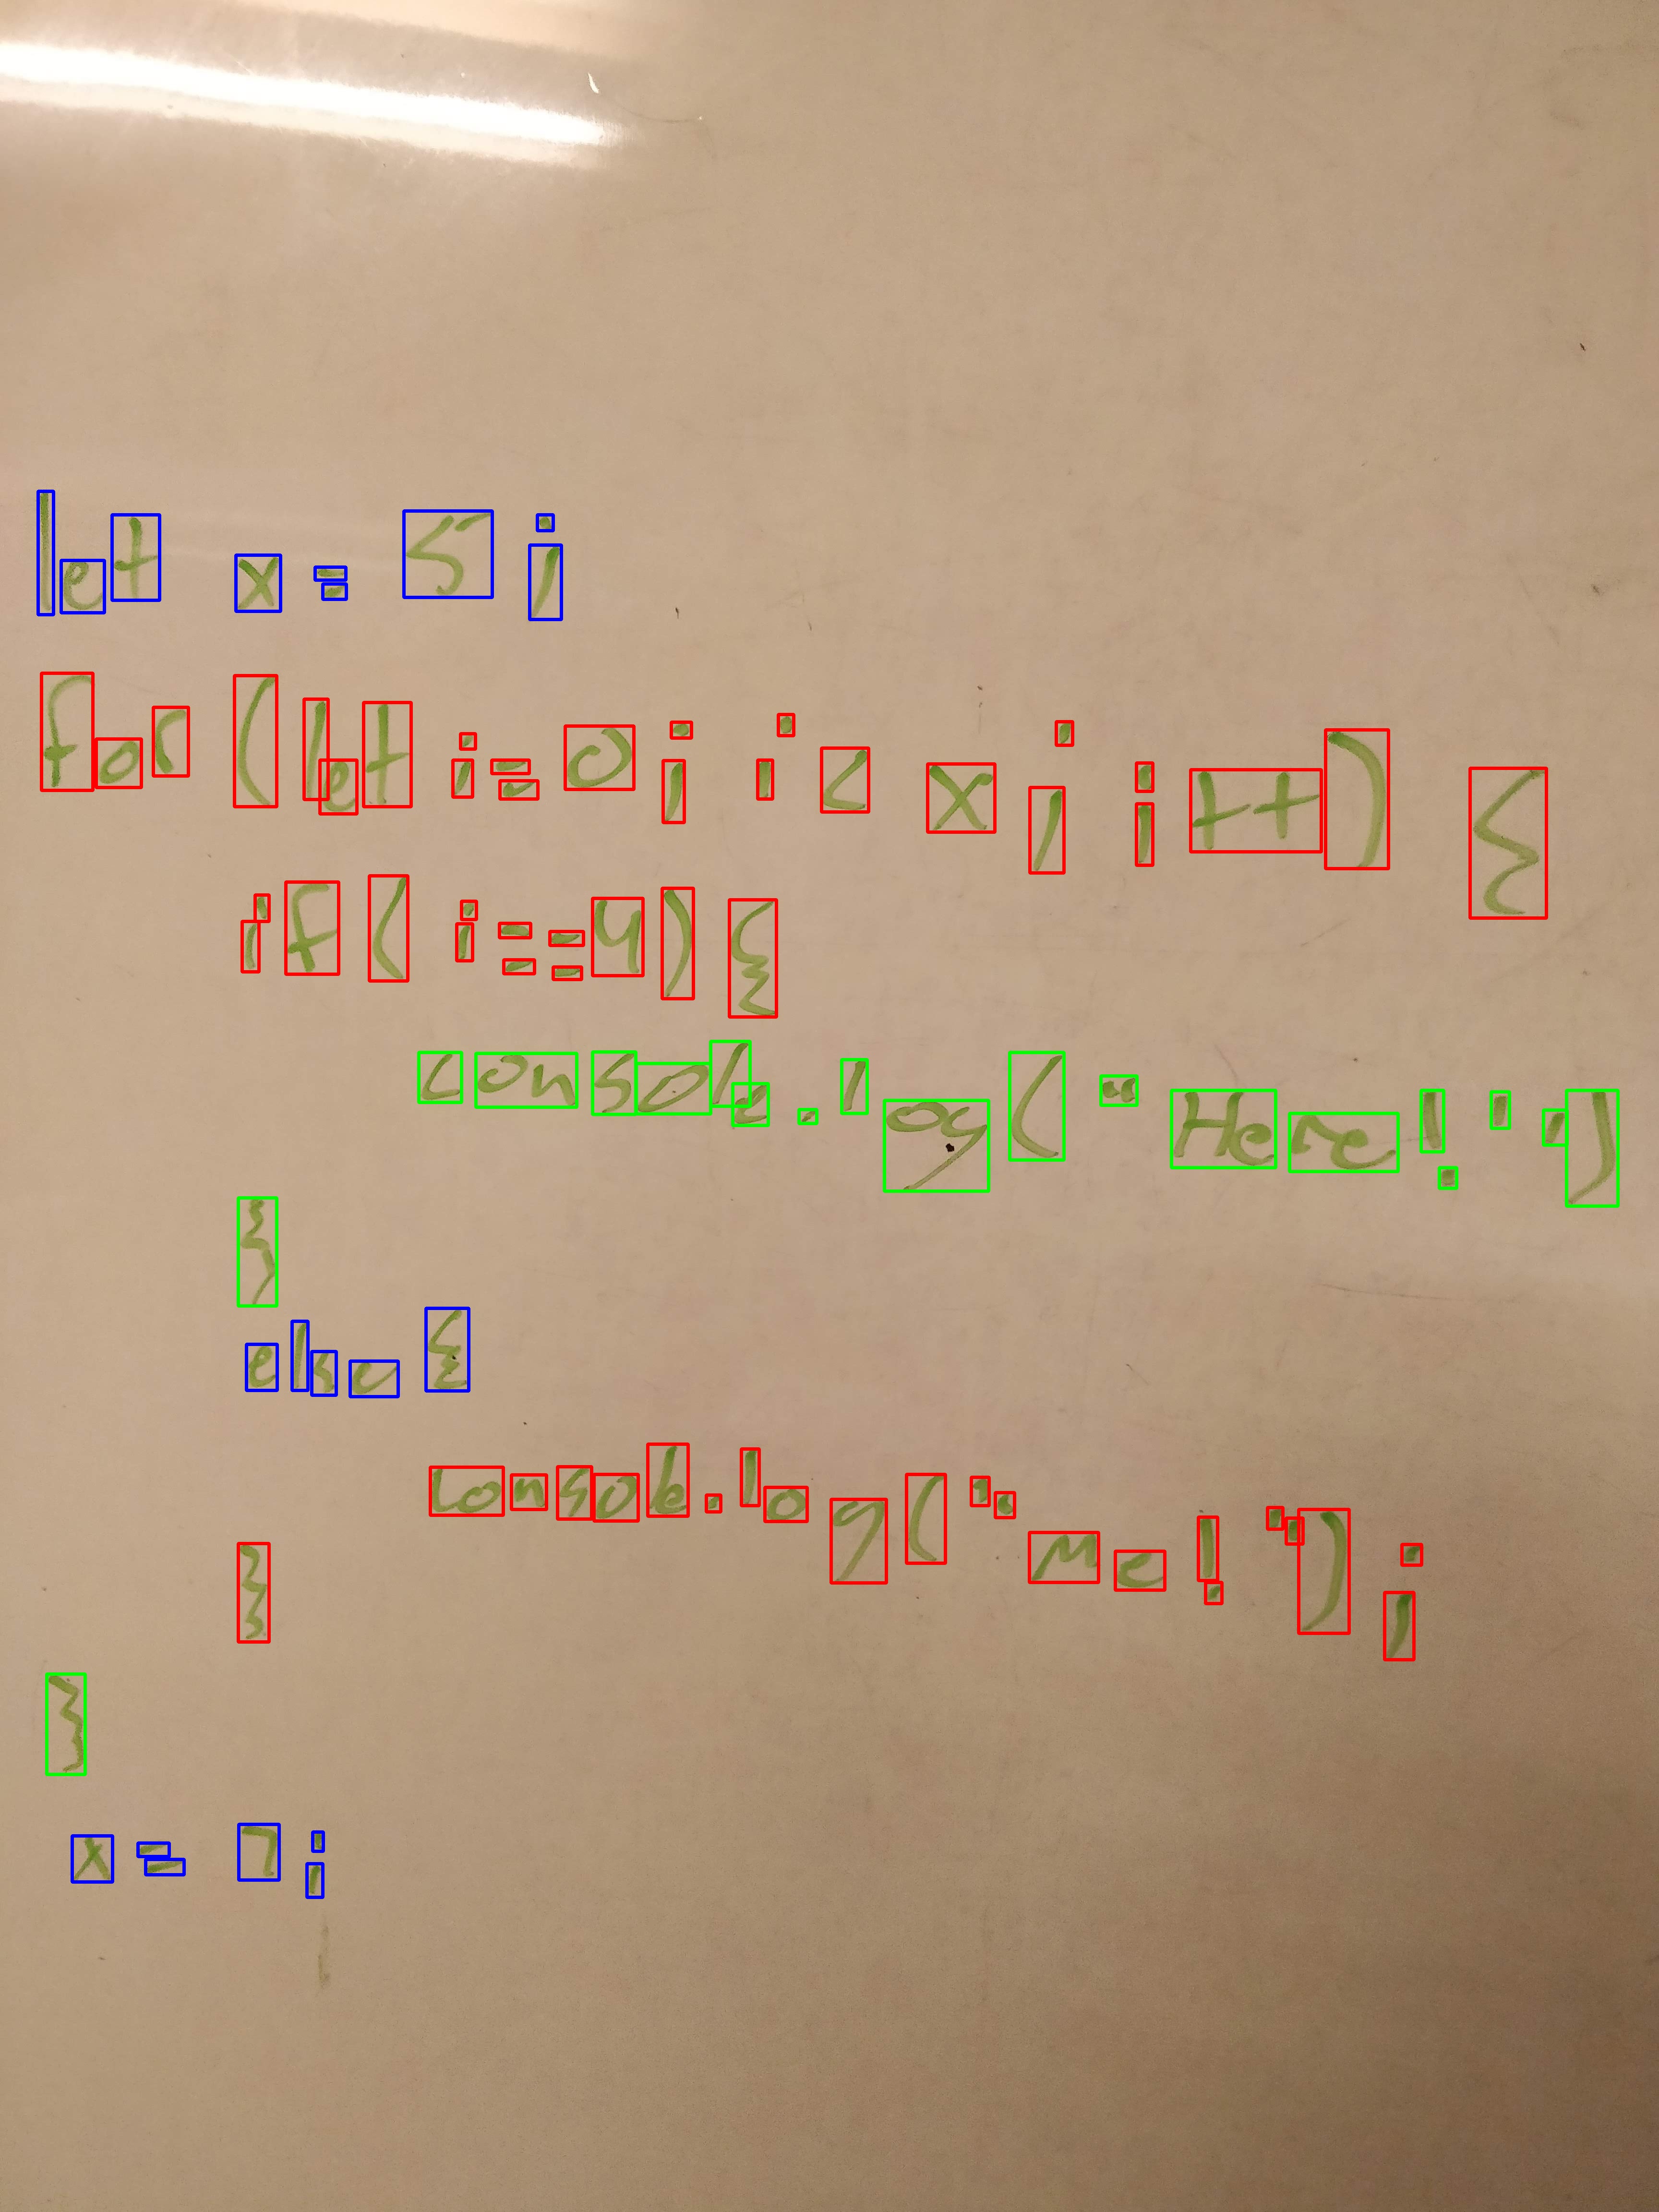 let x = 5;
for (let i=0; i < x; i++) {
if ( i==4) {
console.log( "Here!")
}
else {
console.log("me!");
}
}
x = 7;